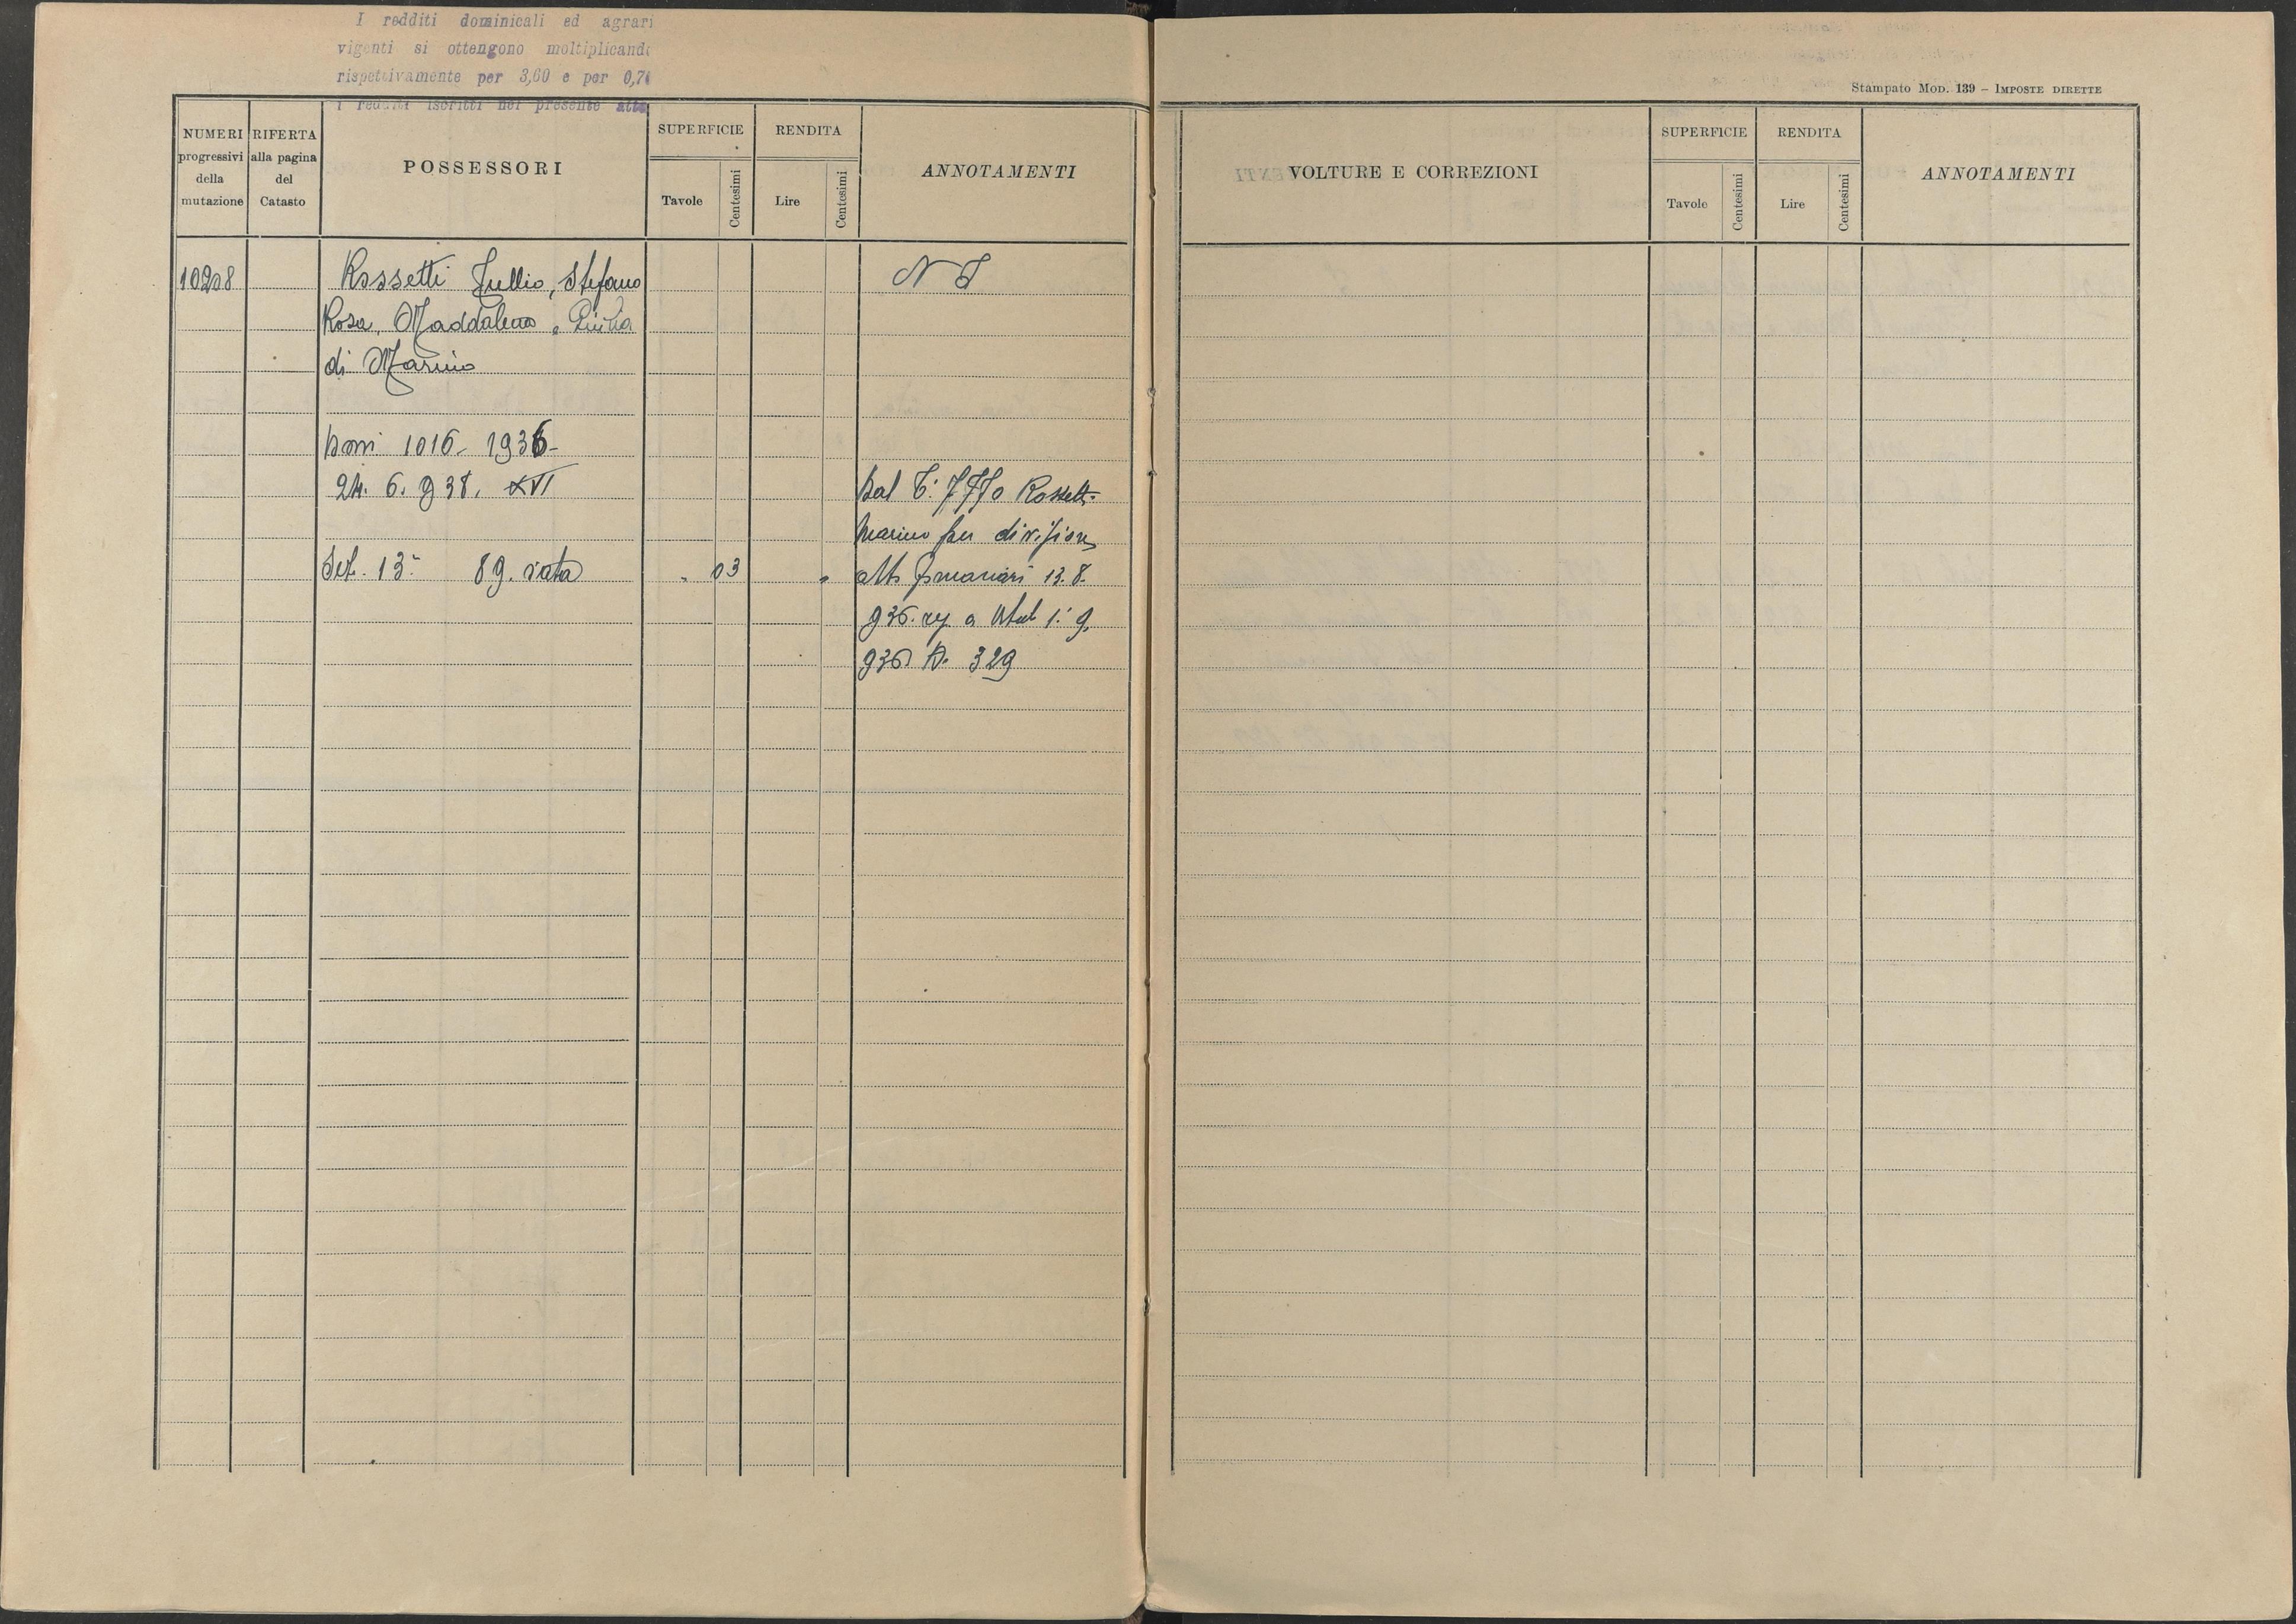 I redditi dominicali ed agrari
vigenti si ottengono moltiplicando
rispettivamente per 3,60 e per 0,70
i redditi iscritti nel presente atto
NUMERI
progressivi
della
mutazione
RIFERTA
alla pagina
del
Catasto
POSSESSORI
SUPERFICIE
Tavole
Centesimi
RENDITA
Lire
Centesimi
ANNOTAMENTI
10208
Rossetti Tullio, Stefano
N T
Rosa, Maddalena
di Marino
1016 - 1936 -
24. 6. 938. XVI
Dal Rossetti
Marino per divisione
Sez. 13ª 89. rata " 03 "
13. 8.
936. 1. 9.
936 N. 329
Stampato Mod. 139 – Imposte dirette
VOLTURE E CORREZIONI
SUPERFICIE
Tavole
Centesimi
RENDITA
Lire
Centesimi
ANNOTAMENTI